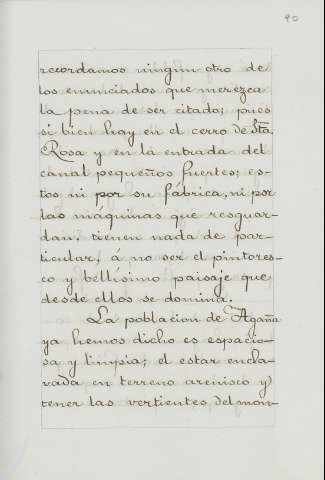 90
recordamos ningun otro de
los enunciados que merezca
la pena de ser citado; pues
si bien hay en el cerro de Sta.
Rosa y en la entrada del
canal pequeños fuertes; es-
tos ni por su fábrica, ni por
las maquinas que resguar-
dan, tienen nada de par-
ticular, á no ser el pintores-
co y bellísimo paisaje que
desde ellos se domina.
La poblacion de Agaña
ya hemos dicho es espacio-
sa y limpia; el estar encla-
vada en terreno arenisco y
tener las vertientes del mon-